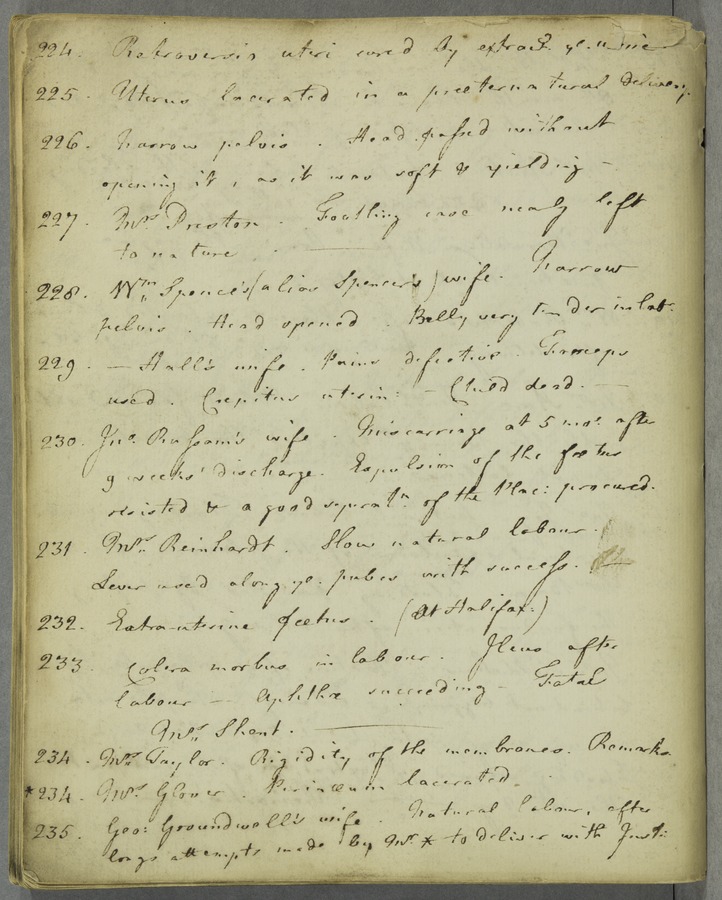 224. Retroversio uteri cured by extract. ye. urine
225. Uterus lacerated in a preternatural delivery.
226. Narrow pelvis. Head passed without
opening it, as it was soft & yielding —
227. Mrs. Preston. Footling case nearly left
to nature. —
228. Wm. Spence's (alias Spencer's) wife. Narrow
pelvis. Head opened. Belly very tender in lab.
229. — Hall's wife. Pains defective. Forceps
used. Crepitus uterin: — Child dead. —
230. Jno. Ransom's wife. Miscarriage at 5 mos. after
9 weeks' discharge. Expulsion of the foetus
resisted & a good separatn. of the Plac: procured.
231. Mrs. Reinhardt. Slow natural labour.
Lever used along ye. pubes with success.
232. Extra-uterine foetus. (At Halifax.)
233. Colera morbus in labour. Ileus after
labour — Aphthæ succeeding — Fatal
Mrs. Shent. —
234. Mrs. Taylor. Rigidity of the membranes. Remarks
*234. Mrs. Glover. Perinæum lacerated.
235. Geo: Groundwell's wife. Natural labour, after
long attempts made by Mr. * to deliver with